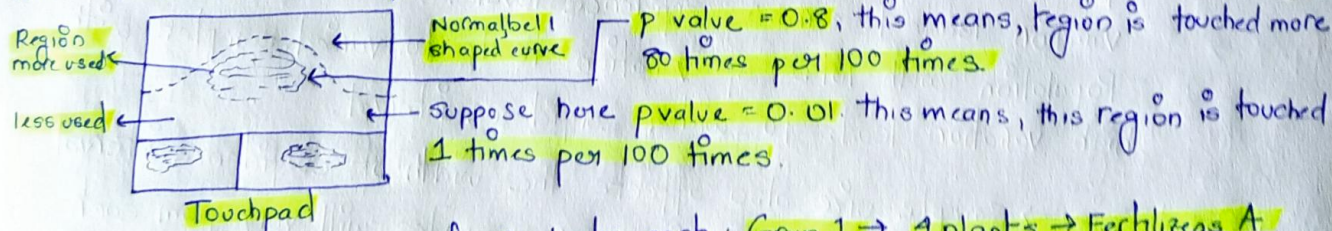 Region more used
less used
Touchpad
Normal bell shaped curve
P value = 0.8, this means, region is touched more
80 times per 100 times.
Suppose here pvalue = 0.01. this means, this region is touched
1 times per 100 times.
1 → 4 plants → Fertilizers A